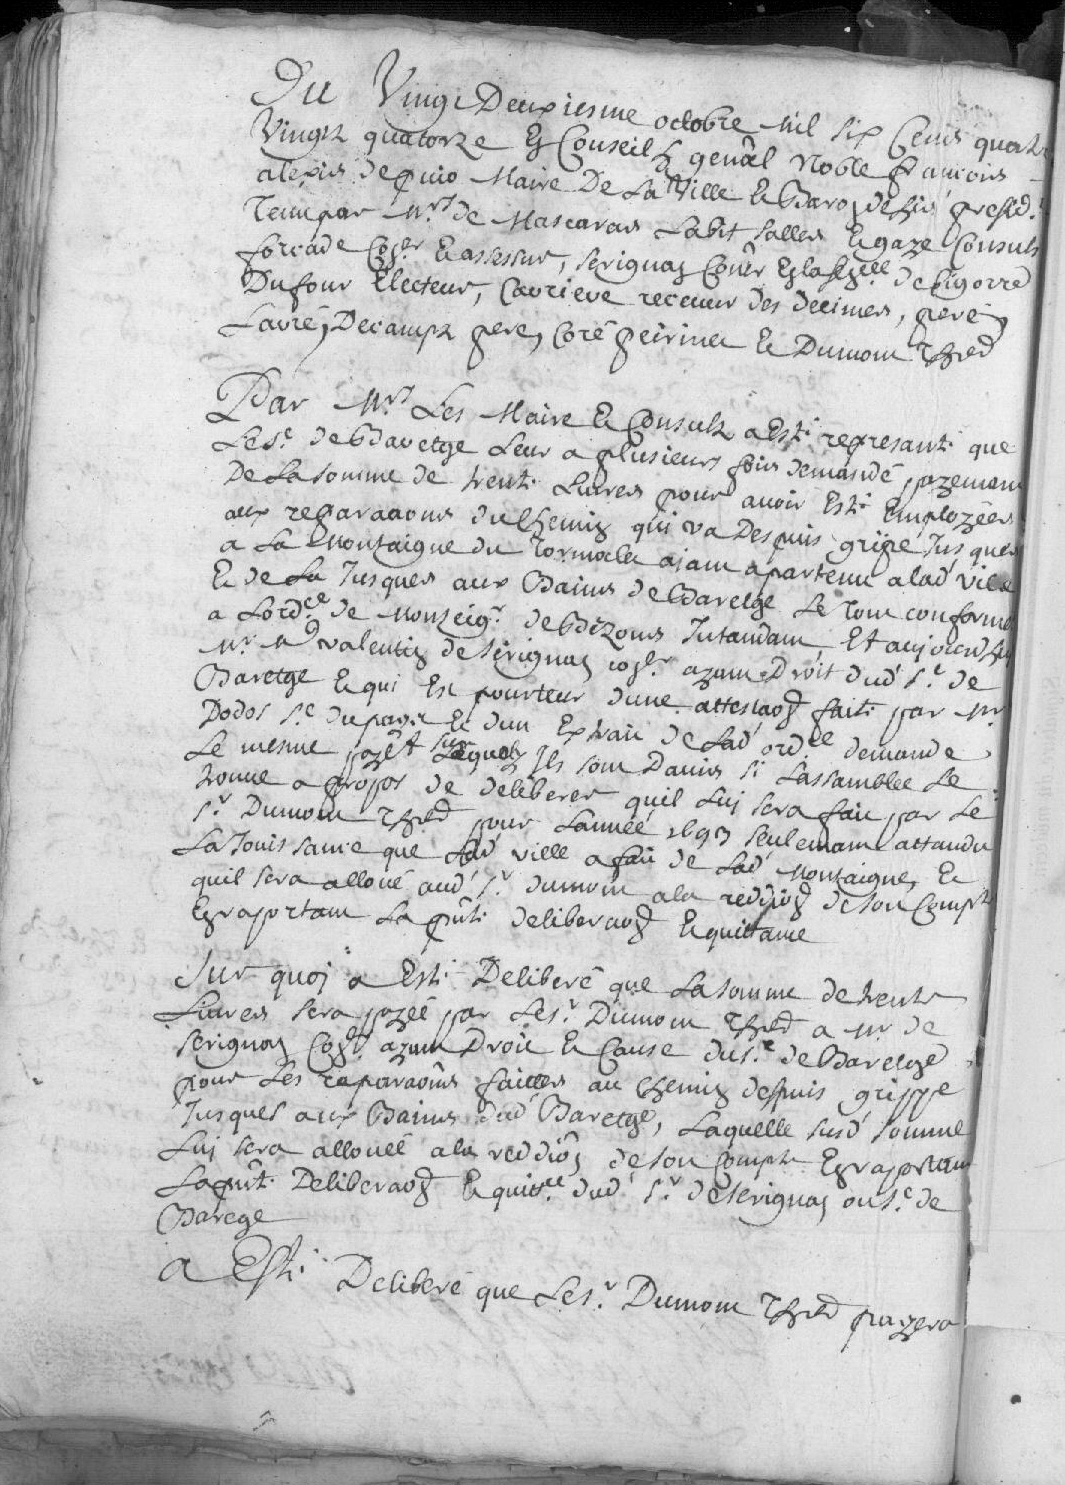 Du Vingt Deuxiesme octobre mil six Cens quatre
Vingtz quatorze En Conseil genâl Noble francois
alexis de puio Maire De La Ville Et Baron presid.t
Tenu par M.rs de Mascaras Labit salles Et gaze Consuls
forcade Con.er Et assesseur, serignan de bigorre
Dufour Electeur, Caurieve receveur des decimes, pere
Lavré, Decampz pere, peirinet Et Dumom Thred
Par M.rs Les Maire Et Consulz a Esté represanté que
Le S.r de Baretge Leur a plusieurs fois demandé payemant
De La somme de trente Livres pour avoir Esté Employées
aux reparaaons du Chemin qui va Despuis grippe Jusques
a La Montaigne du Tormalet aiant apartenu a lad' ville
Et de La Jusques aux Bains de Baretge Le Tout conforme
a Lord.ce de Monseig.r de Bezons Intandant, Et aujourdhuy
M.r valentin de serignan ayant Droit dud' S.r de
Baretge Et qui Est pourteur dune attestaōn faite par M.r
Dodos Et dun Extrait de Lad' ord.ce demande
Le mesme payêt sur Lequel Ils sont Davis si Lassamblée Le
trouve a propos de deliberer quil Luj sera fait par Le
S.r Dumom Thred pour Lannée 1693 seulemant attandu
La Jouissance que Lad' ville a fait de Lad' Montaigne, Et
quil sera alloué aud' S.r dumom a la reddiōn de son Compte
En raportant La pñte deliberaōn Et quittance
Sur quoj a Esté Deliberé que La somme de trente
Livres sera payée par Le S.r Dumom Thred a M.r de
serignan ayant Droit Et Cause du S.r de Baretge
pour Les reparaōns faittes au Chemin despuis grippe
Jusques aux Bains dud' Baretge, Laquelle susd' somme
Luj sera allouée a la reddiōn de son Compte En raportant
La pñte Deliberaōn Et quit.ce dud' S.r de serignan ou S.r de
Barege
a Esté Deliberé que Le S.r Dumom Thred payera